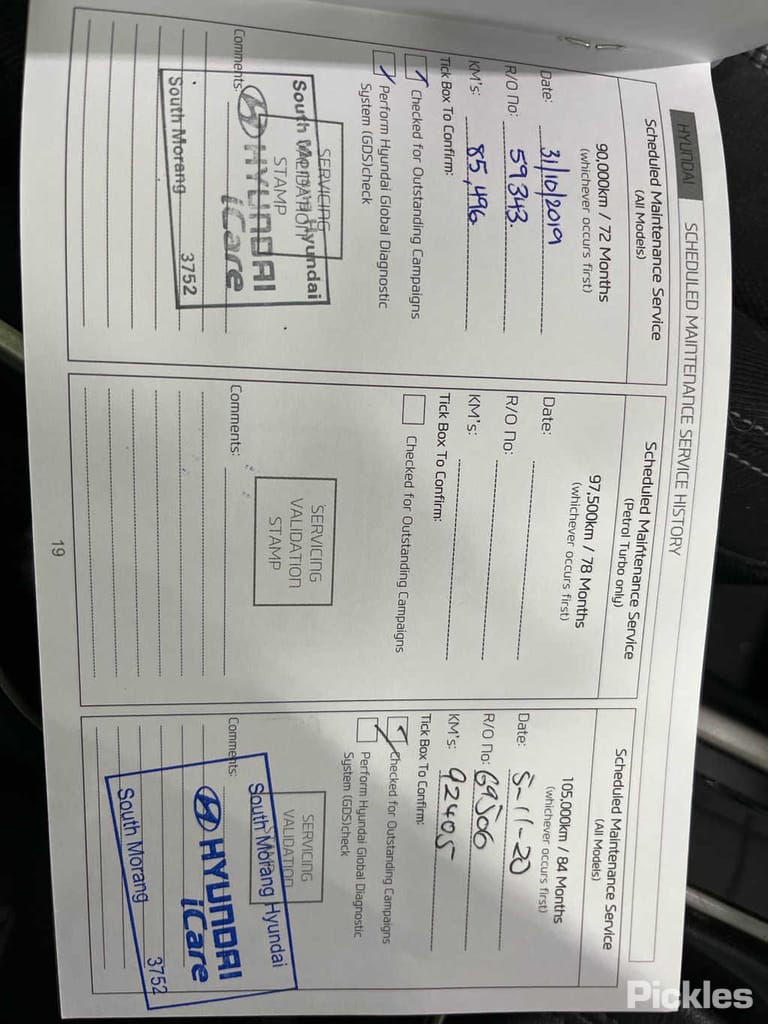 HYUNDAI
SCHEDULED MAINTENANCE SERVICE HISTORY
Scheduled Maintenance Service
(All Models)
90,000km / 72 Months
(whichever occurs first)
Date: 31/10/2019
R/O No: 59343.
KM's: 85,496
Tick Box To Confirm:
Checked for Outstanding Campaigns
Perform Hyundai Global Diagnostic
System (GDS)check
SERVICING
VALIDATION
STAMP
South Morang Hyundai
HYUNDAI
iCare
South Morang 3752
Comments:
Scheduled Maintenance Service
(Petrol Turbo only)
97,500km / 78 Months
(whichever occurs first)
Date:
R/O No:
KM's:
Tick Box To Confirm:
Checked for Outstanding Campaigns
SERVICING
VALIDATION
STAMP
Comments:
Scheduled Maintenance Service
(All Models)
105,000km / 84 Months
(whichever occurs first)
Date: 5-11-20
R/O No: 69506
KM's: 92405
Tick Box To Confirm:
Checked for Outstanding Campaigns
Perform Hyundai Global Diagnostic
System (GDS)check
SERVICING
VALIDATION
South Morang Hyundai
HYUNDAI
iCare
South Morang 3752
Comments:
19
Pickles